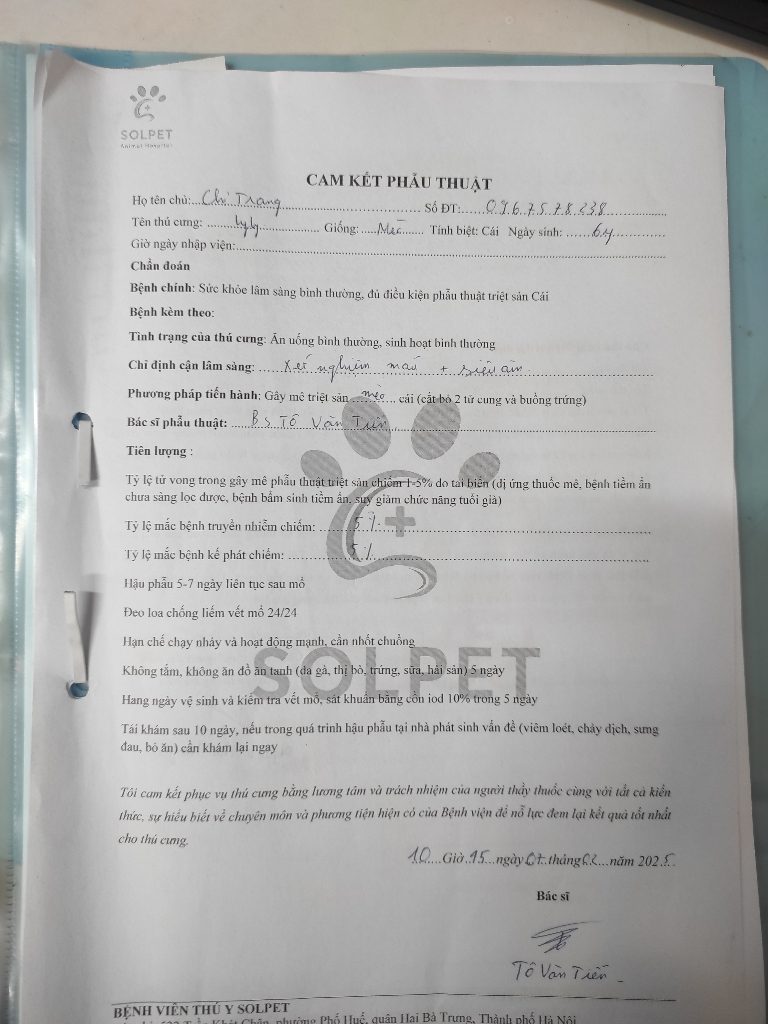 SOLPET
Animal Hospital
CAM KẾT PHẪU THUẬT
Họ tên chủ: Chị Trang Số ĐT: 0967578238
Tên thú cưng: Lyly Giống: Mèo Tính biệt: Cái Ngày sinh: 6y
Giờ ngày nhập viện:
Chẩn đoán
Bệnh chính: Sức khỏe lâm sàng bình thường, đủ điều kiện phẫu thuật triệt sản Cái
Bệnh kèm theo:
Tình trạng của thú cưng: Ăn uống bình thường, sinh hoạt bình thường
Chỉ định cận lâm sàng: xét nghiệm máu + siêu âm
Phương pháp tiến hành: Gây mê triệt sản mèo cái (cắt bỏ 2 tử cung và buồng trứng)
Bác sĩ phẫu thuật: BS Tô Văn Tiến
Tiên lượng :
Tỷ lệ tử vong trong gây mê phẫu thuật triệt sản chiếm 1-5% do tai biến (dị ứng thuốc mê, bệnh tiềm ẩn
chưa sàng lọc được, bệnh bẩm sinh tiềm ẩn, suy giảm chức năng tuổi già)
Tỷ lệ mắc bệnh truyền nhiễm chiếm: 5%
Tỷ lệ mắc bệnh kế phát chiếm: 5%
Hậu phẫu 5-7 ngày liên tục sau mổ
Đeo loa chống liếm vết mổ 24/24
Hạn chế chạy nhảy và hoạt động mạnh, cần nhốt chuồng
Không tắm, không ăn đồ ăn tanh (da gà, thị bò, trứng, sữa, hải sản) 5 ngày
Hang ngày vệ sinh và kiểm tra vết mổ, sát khuẩn bằng cồn iod 10% trong 5 ngày
Tái khám sau 10 ngày, nếu trong quá trình hậu phẫu tại nhà phát sinh vấn đề (viêm loét, chảy dịch, sưng
đau, bỏ ăn) cần khám lại ngay
SOLPET
Tôi cam kết phục vụ thú cưng bằng lương tâm và trách nhiệm của người thầy thuốc cùng với tất cả kiến
thức, sự hiểu biết về chuyên môn và phương tiện hiện có của Bệnh viện để nỗ lực đem lại kết quả tốt nhất
cho thú cưng.
10 Giờ 45 ngày 07 tháng 02 năm 2025
Bác sĩ
Tô Văn Tiến
BỆNH VIỆN THÚ Y SOLPET
Trần Khát Chân, phường Phố Huế, quận Hai Bà Trưng, Thành phố Hà Nội